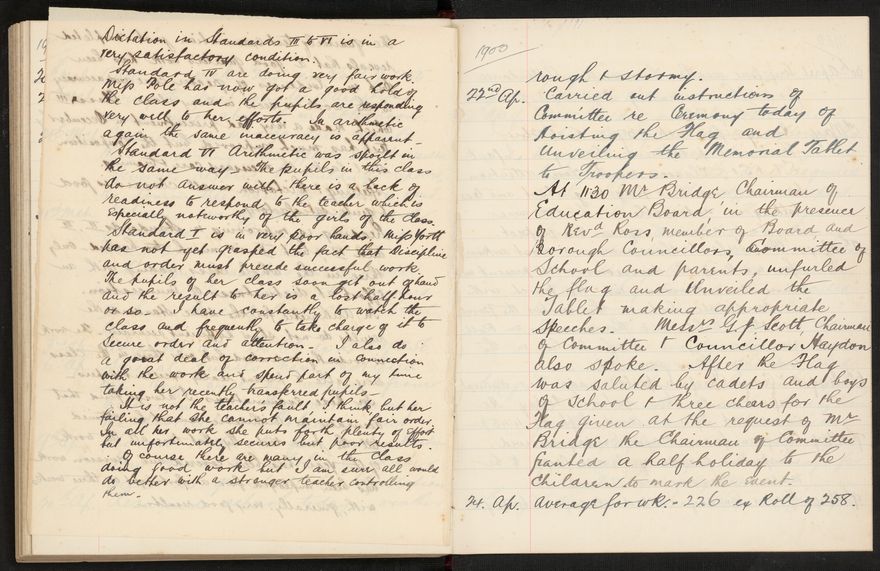 Dictation in Standards III to VI is in a
very satisfactory condition.
Standard IV are doing very fair work.
Miss Pole has now got a good hold of
the class and the pupils are responding
very well to her efforts. In arithmetic
again the same inaccuracy is apparent.
Standard VI Arithmetic was spoilt in
the same way. The pupils in this class
do not answer well, there is a lack of
readiness to respond to the teacher which is
especially noteworthy of the girls of the class.
Standard I is in very poor hands. Miss
has not yet grasped the fact that discipline
and order must precede successful work.
The pupils of her class soon get out of hand
and the result to her is a lost half hour
or so. I have constantly to watch the
class and frequently to take charge of it to
secure order and attention. I also do
a great deal of correction in connection
with the work and spend part of my time
taking her recently transferred pupils.
It is not the teacher's fault I think, but her
failing that she cannot maintain fair order.
In all her work she puts forth plenty of effort
but unfortunately secures but poor results.
Of course there are many in the class
doing good work but I am sure all would
do better with a stronger teacher controlling
them.
1900
rough & stormy.
22nd Ap. Carried out instructions of
Committee re Ceremony today of
Hoisting the Flag and
Unveiling the Memorial Tablet
to Troopers.
At 11.30 Mr Bridge, Chairman of
Education Board, in the presence
of Revd Ross, member of Board and
Borough Councillors, Committee of
School and parents, unfurled
the flag and Unveiled the
Tablet making appropriate
Speeches. Messrs G.J. Scott Chairman
of Committee & Councillor Haydon
also spoke. After the Flag
was saluted by cadets and boys
of School & three cheers for the
Flag given at the request of Mr
Bridge the Chairman of Committee
granted a half holiday to the
children to mark the event.
24. Ap. Average for wk. - 226 ex Roll of 258.